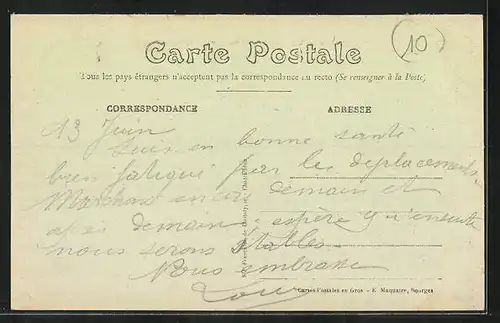 10
Carte Postale
Tous les pays étrangers n'acceptent pas la correspondance au recto (Se renseigner à la Poste)
CORRESPONDANCE
ADRESSE
13 Juin
Suis en bonne santé
bien fatigué par les déplacements
Marchons encore demain et
demain espère qu'ensuite
nous serons stables
Vous embrasse
Cartes Postales en Gros - E. Maquaire, Bourges